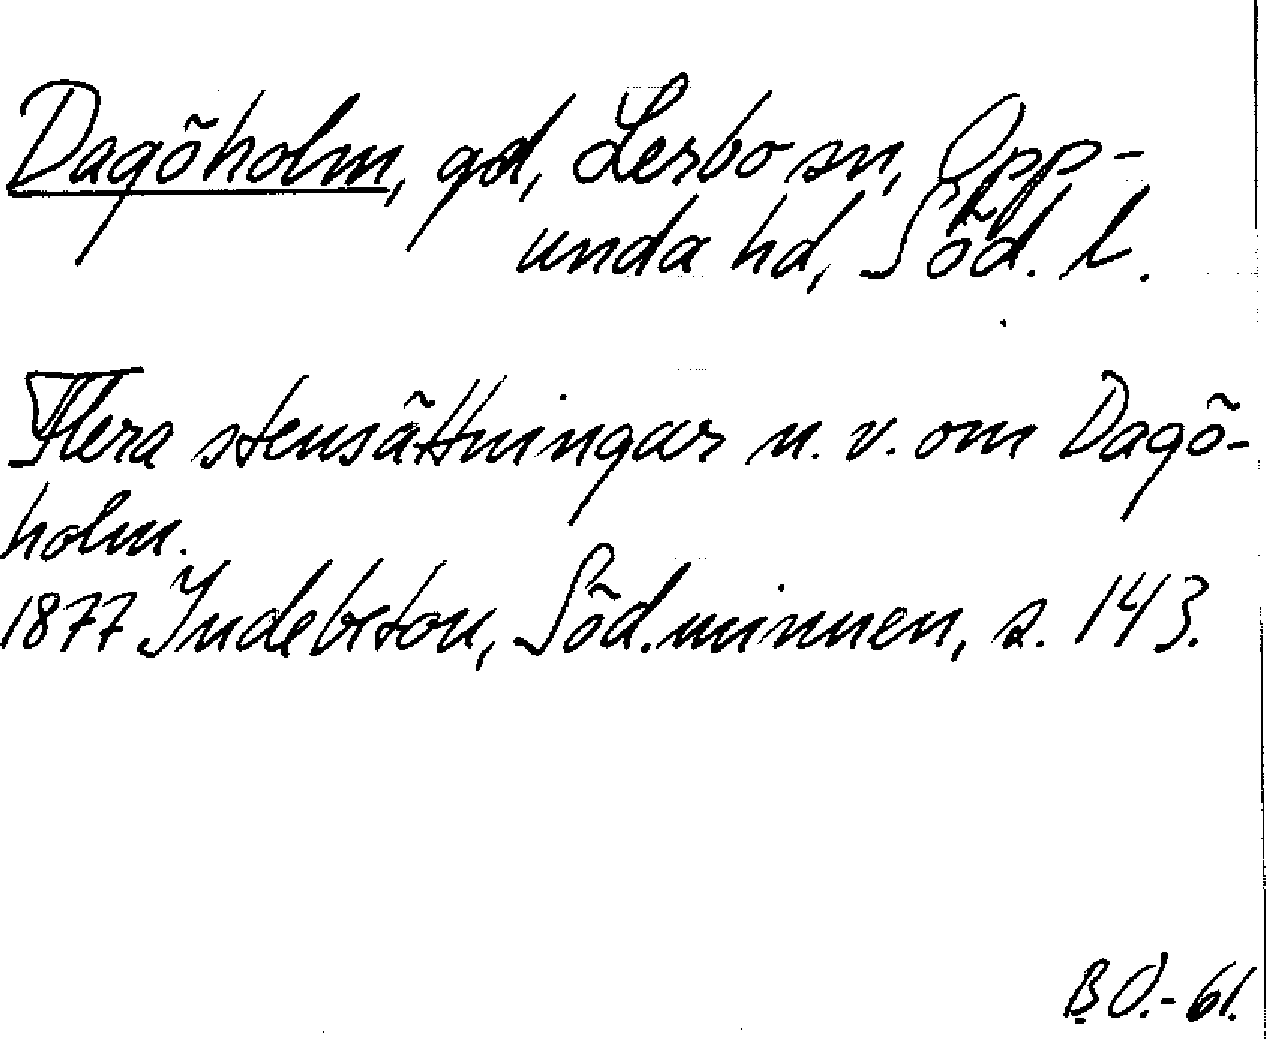 Dagöholm, gd, Lerbo sn, Opp-
unda hd, Söd. l.
Flera stensättningar n. v. om Dagö-
holm.
1877 Indebetou, Söd. minnen, s. 143.
B.O.-61.